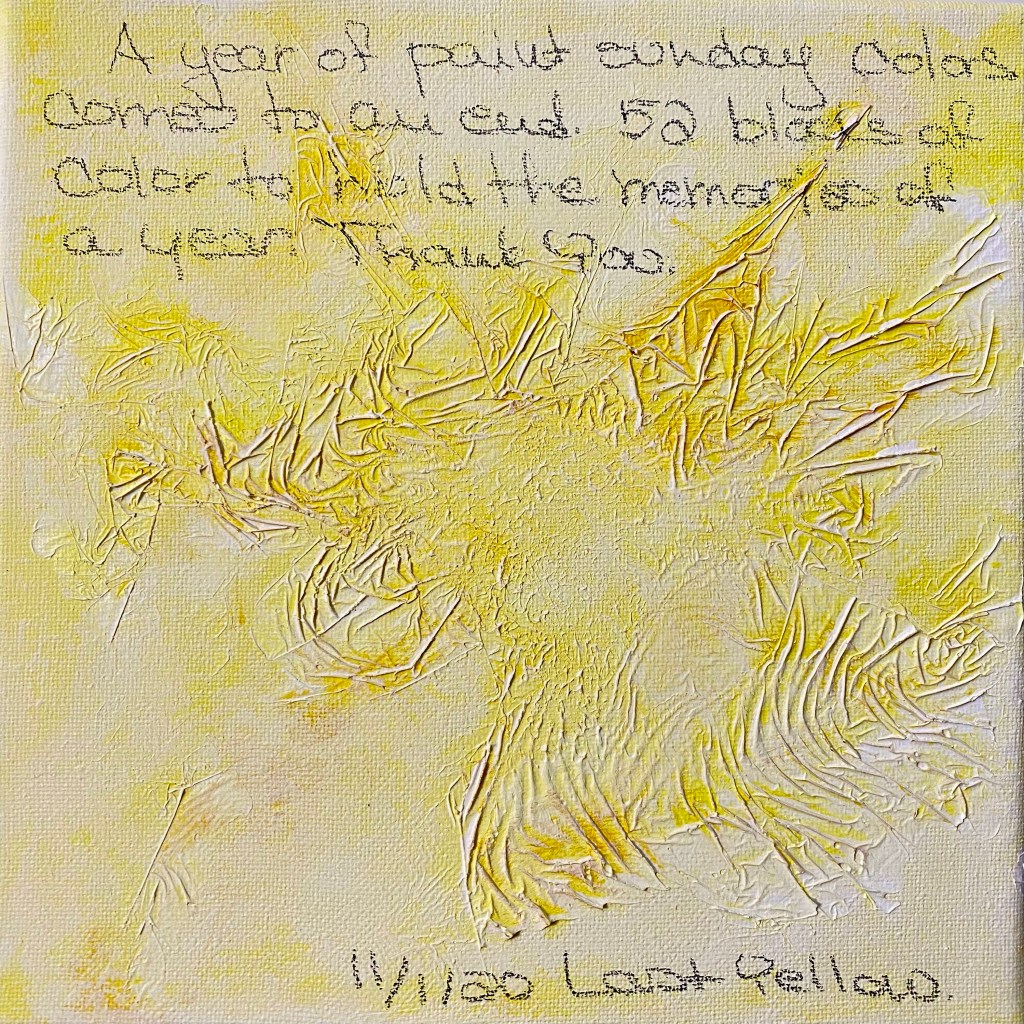 A year of paint sunday color
comes to an end. 52 blocks of
color to hold the memories of
a year. Thank You.
11/1/20 Last Yellow.